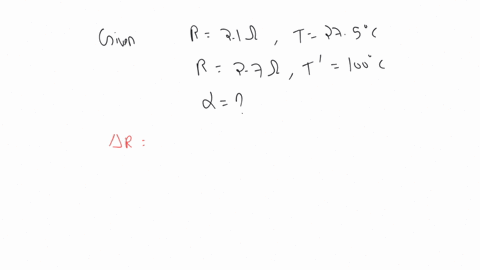 Given R = 2.1 Ω , T = 27.5°C
R = 2.7 Ω , T' = 100°C
α = ?
ΔR =